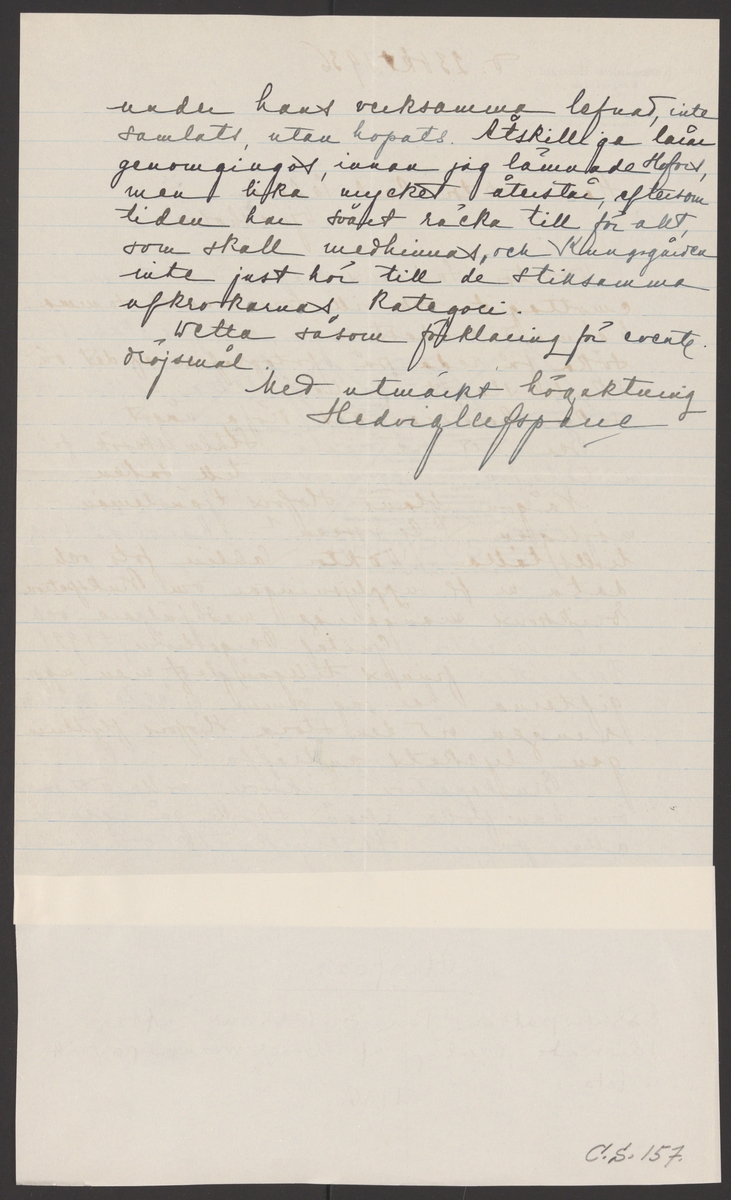 under hans verksamma lefnad, inte
samlats, utan hopats. Åtskilliga lårar
genomgingos, innan jag lämnade Hofors,
men lika mycket återstår, eftersom
tiden har svårt räcka till för allt,
som skall medhinnas, och Kungsgården
inte just hör till de stillsamma
afkrokarnas kategori.
Detta såsom förklaring för event.
dröjsmål.
Med utmärkt högaktning
Hedvig Ulfsparre
C.S. 157.